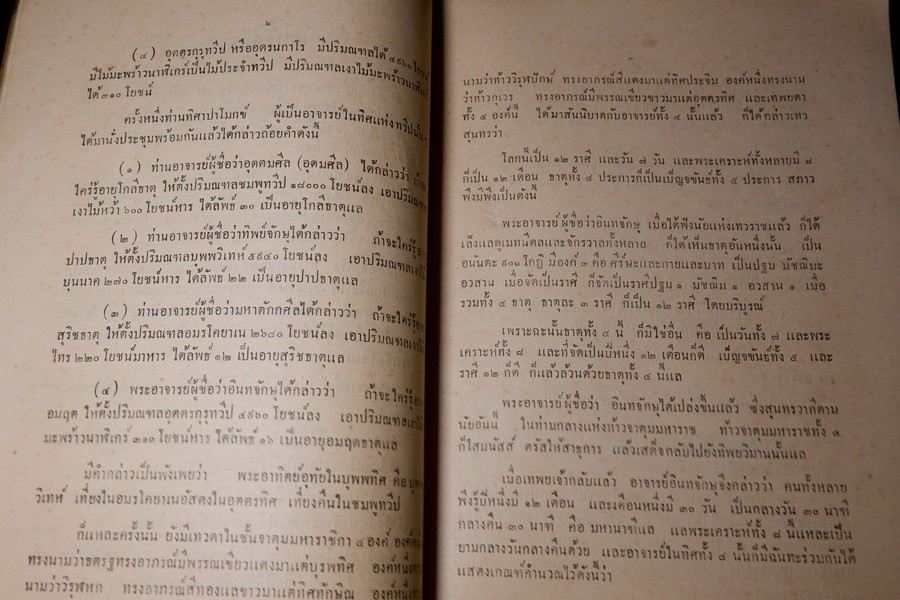 ๒
(๔) อุตตรกุรุทวีป หรืออุตรนกาโร มีปริมณฑลได้ ๔๙๖๐ โยชน์
มีไม้มะพร้าวนาฬิเกร์เป็นไม้ประจำทวีป มีปริมณฑลเงาไม้มะพร้าวนาฬิเกร์
ได้ ๓๑๐ โยชน์
ครั้งหนึ่งท่านทิศาปาโมกข์ ผู้เป็นอาจารย์ในทิศแห่งทวีปนั้น
ได้มานั่งประชุมพร้อมกันแล้วได้กล่าวถ้อยคำดังนี้
(๑) ท่านอาจารย์ผู้ชื่อว่าอุตตมศีล (อุดมศีล) ได้กล่าวว่า ถ้าจะ
ใคร่รู้อายุโกลีธาตุ ให้ตั้งปริมณฑลชมพูทวีป ๑๘๐๐๐ โยชน์ลง เอาปริมณฑล
เงาไม้หว้า ๖๐๐ โยชน์หาร ได้ลัพธ์ ๓๐ เป็นอายุโกลีธาตุแล
(๒) ท่านอาจารย์ผู้ชื่อว่าทิพย์จักษุได้กล่าวว่า ถ้าจะใคร่รู้อายุ
ปาปธาตุ ให้ตั้งปริมณฑลบุพพวิเทห์ ๕๙๔๐ โยชน์ลง เอาปริมณฑลเงาไม้
บุนนาค ๒๗๐ โยชน์หาร ได้ลัพธ์ ๒๒ เป็นอายุปาปธาตุแล
(๓) ท่านอาจารย์ผู้ชื่อว่ามหาตักกศีลได้กล่าวว่า ถ้าจะใคร่รู้อายุ
สุริชธาตุ ให้ตั้งปริมณฑลอมรโคยาเน ๒๖๔๐ โยชน์ลง เอาปริมณฑลเงาไม้
ไทร ๒๒๐ โยชน์มาหาร ได้ลัพธ์ ๑๒ เป็นอายุสุริชธาตุแล
(๔) พระอาจารย์ผู้ชื่อว่าอินทจักษุได้กล่าวว่า ถ้าจะใคร่รู้อายุ
อมฤต ให้ตั้งปริมณฑลอุตตรกุรุทวีป ๔๙๖๐ โยชน์ลง เอาปริมณฑลเงาไม้
มะพร้าวนาฬิเกร์ ๓๑๐ โยชน์หาร ได้ลัพธ์ ๑๖ เป็นอายุอมฤตธาตุแล
มีคำกล่าวเป็นพังเพยว่า พระอาทิตย์อุทัยในบุพพทิศ คือ บุพพ
วิเทห์ เที่ยงในอมรโคยาเนอัสดงในอุตตรทิศ เที่ยงคืนในชมพูทวีป
ก็แหละครั้งนั้น ยังมีเทวดาในชั้นจาตุมมหาราชิกา ๔ องค์ องค์หนึ่ง
ทรงนามว่าธตรฐทรงอาภรณ์มีพรรณเขียวแดงมาแต่บุรพทิศ องค์หนึ่ง
นามว่าวิรุฬหก ทรงอาภรณ์สีทองแลขาวมาแต่ทิศทักษิณ องค์หนึ่ง
นามว่าท้าววิรุฬปักษ์ ทรงอาภรณ์สีแดงมาแต่ทิศประจิม องค์หนึ่งทรงนาม
ว่าท้าวกุเวร ทรงอาภรณ์มีพรรณเขียวขาวมาแต่อุตตรทิศ และเทพยดา
ทั้ง ๔ องค์นี้ ได้มาสนนิบาตกับอาจารย์ทั้ง ๔ นั้นแล้ว ก็ได้กล่าวเทว
สุนทรว่า
โลกนี้เป็น ๑๒ ราศี และวัน ๗ วัน และพระเคราะห์ทั้งหลายมี ๘
ก็เป็น ๑๒ เดือน ธาตุทั้ง ๔ ประการก็เป็นเบ็ญจขันธ์ทั้ง ๕ ประการ สภาว
พึงมีพึงเป็นดังนี้
พระอาจารย์ ผู้ชื่อว่าอินทจักษุ เมื่อได้ฟังนัยแห่งเทวราชแล้ว ก็ได้
เล็งแลดูเมทนีดลและจักรวาลทั้งหลาย ก็ได้เห็นธาตุอันหนึ่งนั้น เป็น
อนันตะ ๙๐๐ โกฏิ มีองค์ ๓ คือ ศีร์ษะและกายและบาท เป็นปฐม มัชฌิมะ
อวสาน เมื่อจัดเป็นราศี ก็จัดเป็นราศีปฐม ๑ มัชฌิม ๑ อวสาน ๑ เมื่อ
รวมทั้ง ๔ ธาตุ ธาตุละ ๓ ราศี ก็เป็น ๑๒ ราศี โดยบริบูรณ์
เพราะฉะนั้นธาตุทั้ง ๔ นี้ ก็มิใช่อื่น คือ เป็นวันทั้ง ๗ และพระ
เคราะห์ทั้ง ๘ และที่จัดเป็นปีหนึ่ง ๑๒ เดือนก็ดี เบ็ญจขันธ์ทั้ง ๕ และ
ราศี ๑๒ ก็ดี ก็แล้วล้วนด้วยธาตุทั้ง ๔ นี้แล
พระอาจารย์ผู้ชื่อว่า อินทจักษุได้เปล่งขึ้นแล้ว ซึ่งสุนทรวาทีตาม
นัยอันนี้ ในท่ามกลางแห่งท้าวจาตุมมหาราช ท้าวจาตุมมหาราชทั้ง ๔
ก็โสมนัสส์ ตรัสให้สาธุการ แล้วเสด็จกลับไปยังทิพยวิมานนั้นแล
เมื่อเทพยเจ้ากลับแล้ว อาจารย์อินทจักษุจึงกล่าวว่า คนทั้งหลาย
พึงรู้ปีหนึ่งมี ๑๒ เดือน และเดือนหนึ่งมี ๓๐ วัน เป็นกลางวัน ๓๐ นาฑี
กลางคืน ๓๐ นาฑี คือ มหานาฑีแล แลพระเคราะห์ทั้ง ๘ นี้แหละเป็น
ยามกลางวันกลางคืนด้วย และอาจารย์ในทิศทั้ง ๔ นั้นก็มีฉันทะร่วมกันได้
แสดงเกณฑ์คำนวณไว้ดังนี้ว่า